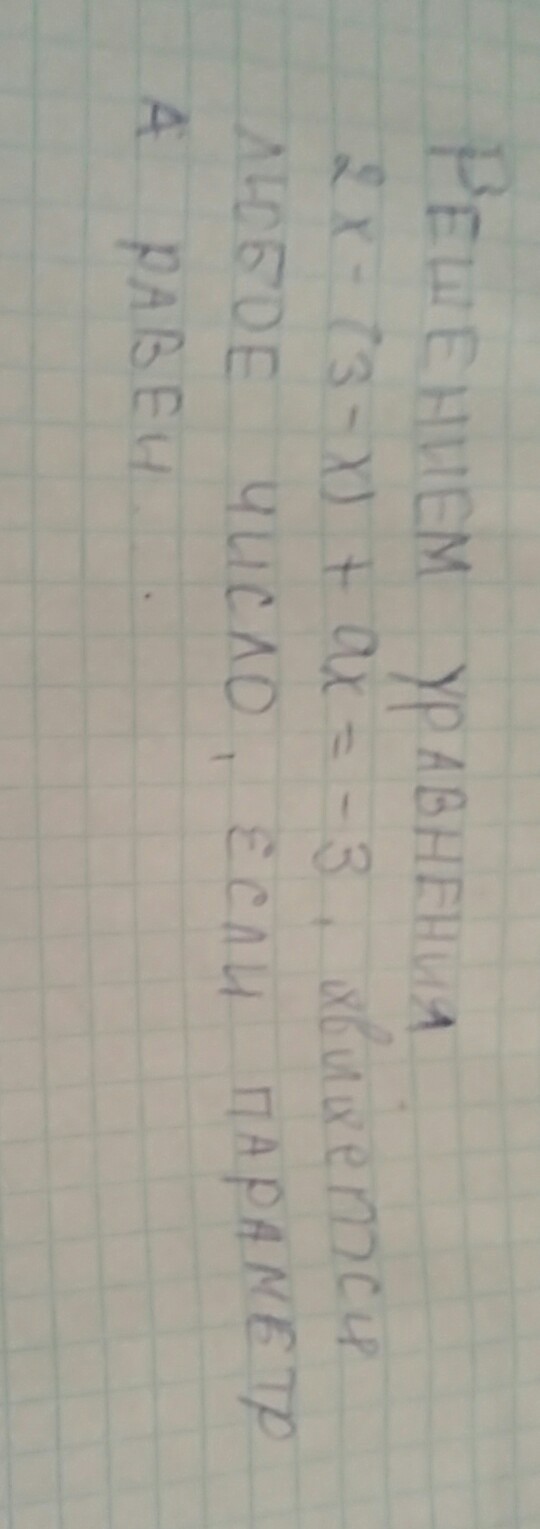 РЕШЕНИЕМ УРАВНЕНИЯ
2x - (3 - x) + ax = -3, является
ЛЮБОЕ ЧИСЛО, ЕСЛИ ПАРАМЕТР
А РАВЕН.